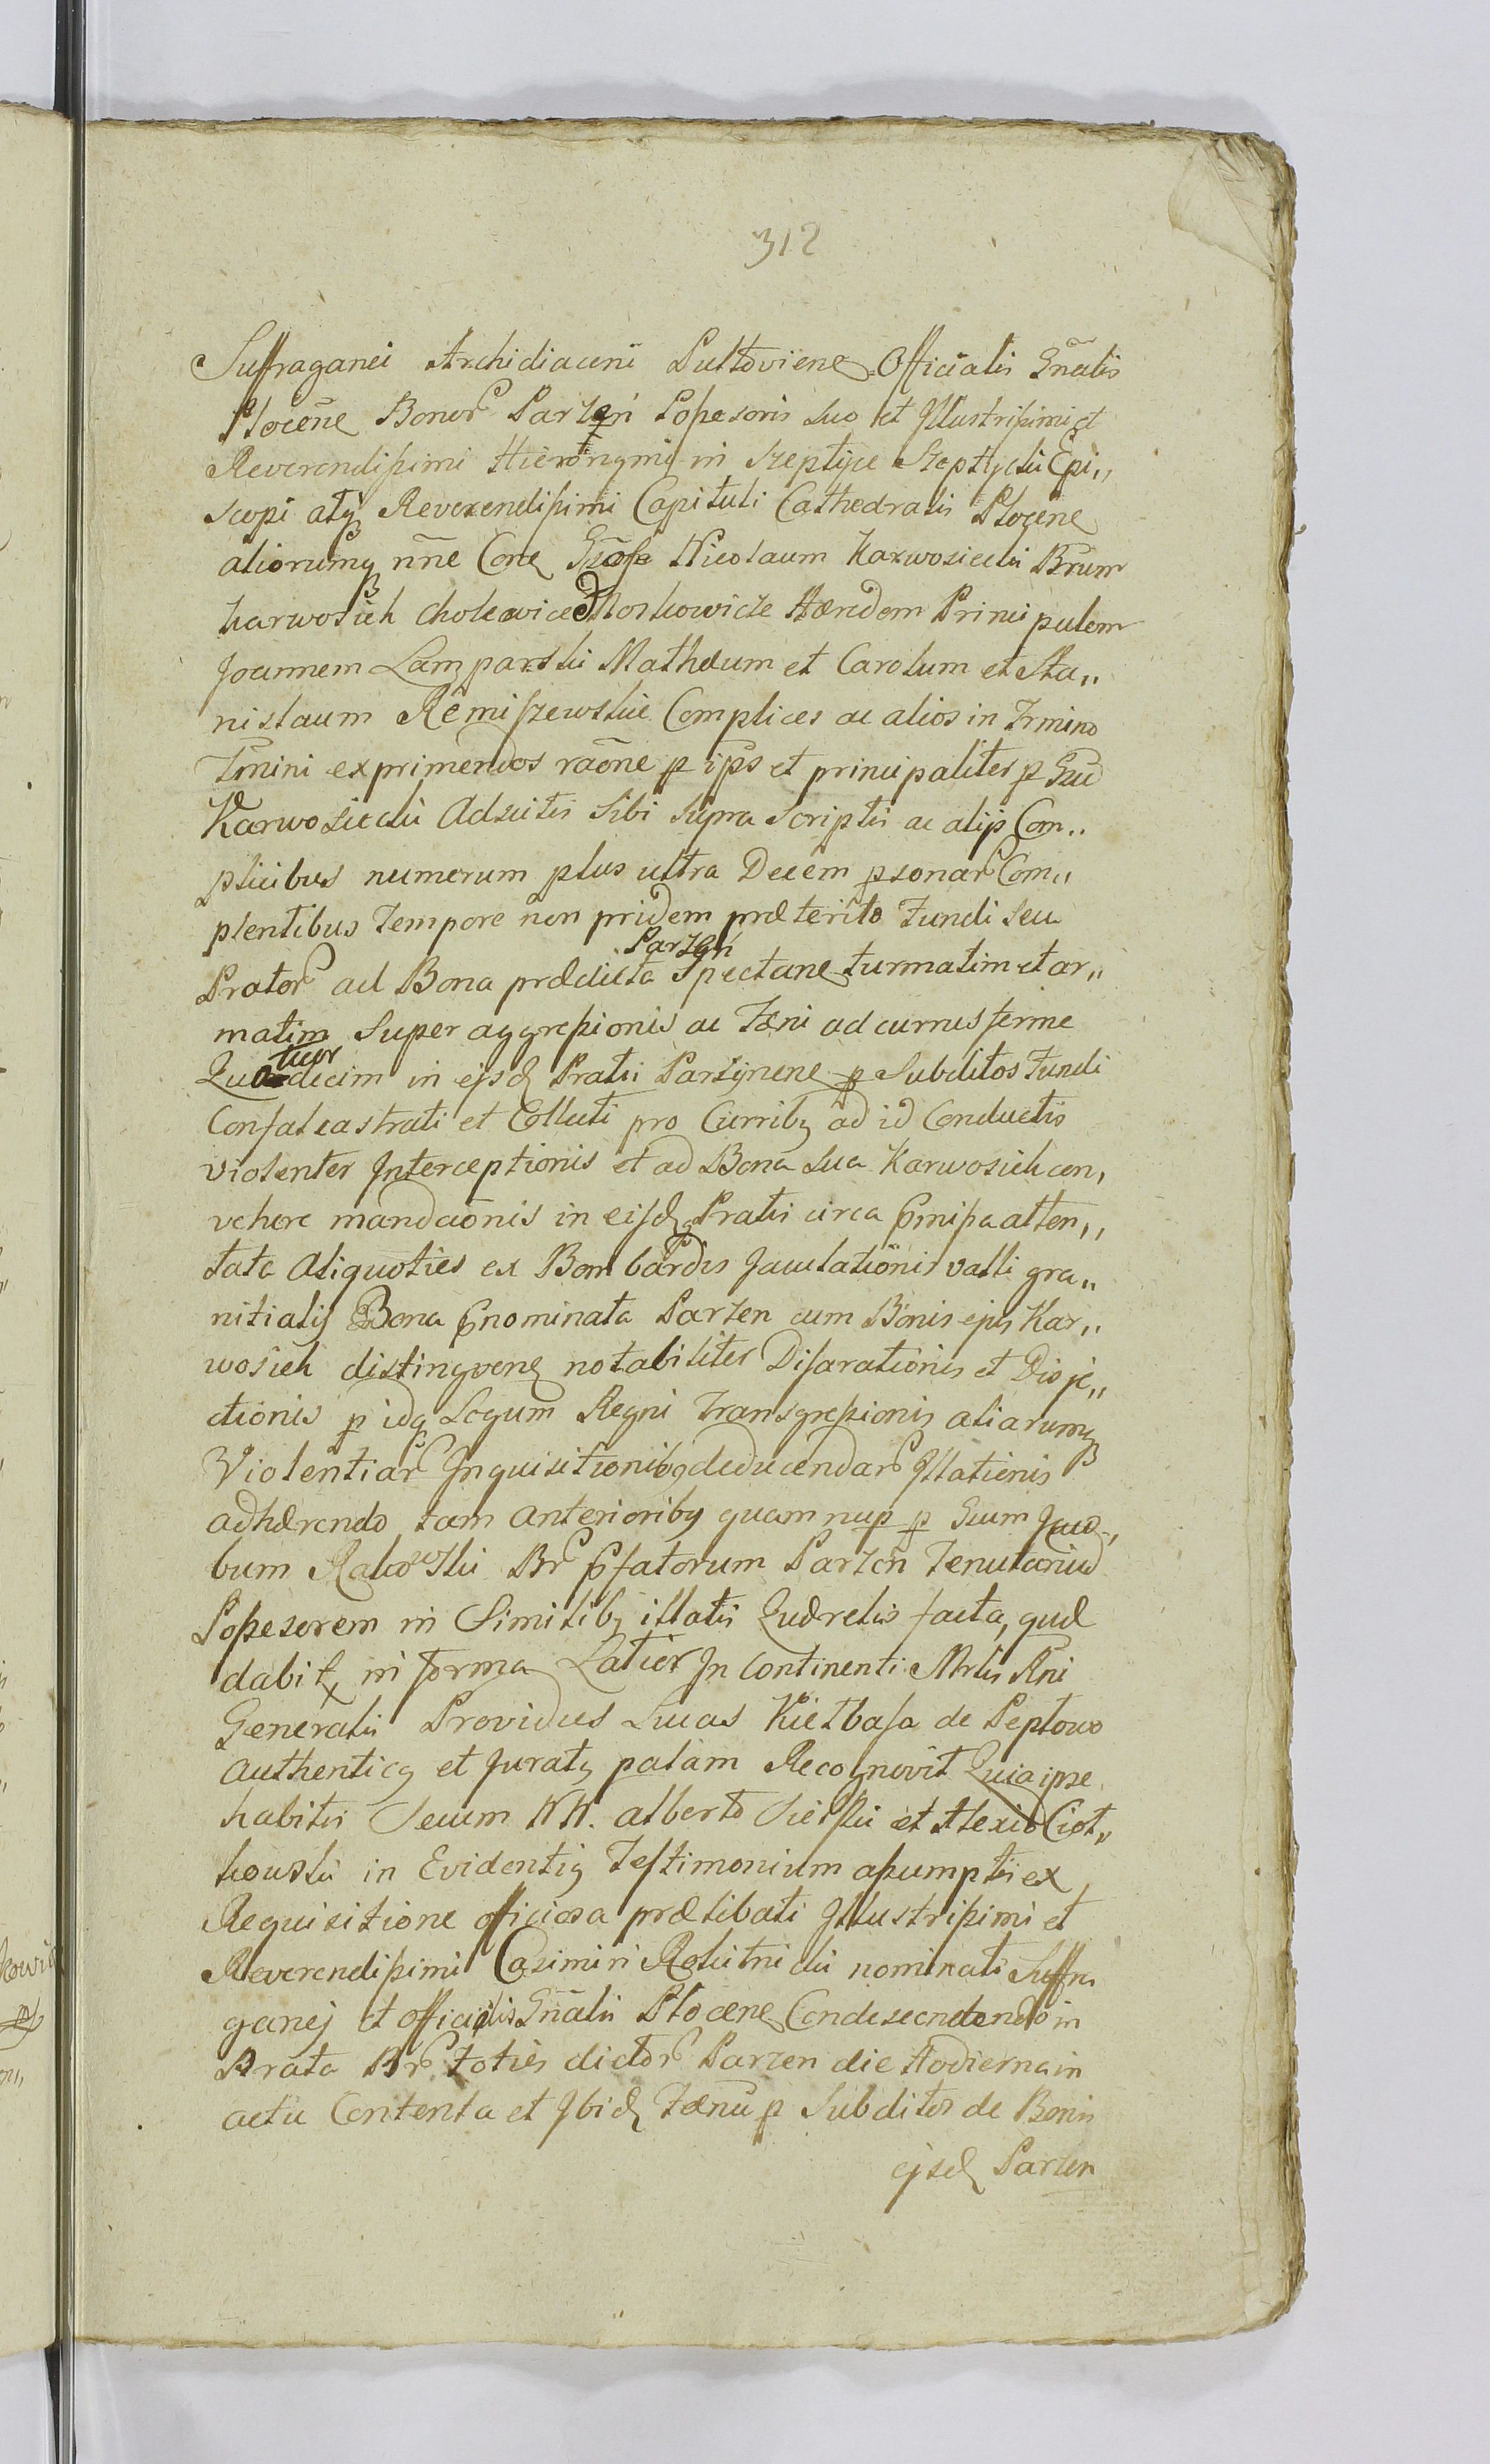 312
Suffraganei Archidiaconi Pultoviens Officialis Gñalis
Plocẽne Bonor Parzeń Possesoris suo et Illustrissimi et
Reverendissimi Hieronymi in Szeptyce Szeptycki Epi„
scopi atq Reverendissimi Capituli Cathedralis Plocene
aliorumq nñe Cone Gñose Nicolaum Karwosiecki Brum
karwosiek Cholewice Noskowicze Hæredem Principalem
Joannem Lamparski Mathæum et Carolum et Sta„
nislaum Remiszewskie Complices ac alios in Trmino
Tmini exprimendos raõne p ips et principaliter p Gud
Karwosiecki Adscitis Sibi Supra Scriptis ac alijs Com„
plicibus numerum plus ultra Decem psonar Com„
plentibus Tempore non pridem præterito Fundi Seu
Parzeń
Prator ad Bona prædicta Spectane turmatim et ar„
matim Super aggressionis ac Fæni ad currus ferme
tuor
Quadecim in ejsd Pratis Parzynene p Subditos Fundi
Confalcastrati et Collecti pro Curribq ad id Conductis
violenter Interceptionis et ad Bona Sua Karwosiek con,
vehere mandaõnis in eisd Pratis circa pmissa atten„
tata Aliquoties ex Bombardis Jaculationis valli gra„
nitialis Bona pnominata Parzen cum Bonis ejus Kar„
wosiek distingvene notabiliter Disarationis et Disje„
ctionis p idq Legum Regni Transgressionis aliarumq
Violentiar Inquisitionibq deducendar Illationis
adhærendo tam anterioribq quam nup p Gum Jaco„
bum Rakowski Br pfatorum Parzen Tenutarium
Possesorem in Similibq illatis Quærelis facta, quæ
dabit in forma Latior In Continenti Mrlis Rni
Generalis Providus Lucas Kiełbasa de Peptowo
Authenticq et Juratq palam Recognovit Quia ipse
habitis Secum NN. Alberto Sierski et Alexio Ciot„
kowski in Evidentiq Testimonium assumptis ex
Requisitione officiosa prælibati Illustrissimi et
Reverendissimi Casimiri Rokitnicki nominati Suffra
ganej et officialis Gñalis Plocene Condescendendo in
Prata Br toties dictor Parzen die Hodierna in
actu Contenta et Ibid Fænu p Subditos de Bonis
ejsd Parzen